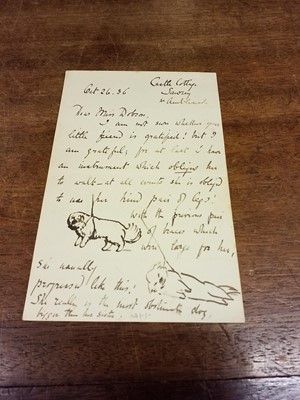 Oct 26. 36
Castle Cottage
Sawrey
Ambleside
Dear Miss Dobson
I am not sure whether your
little friend is gratified! but I
am grateful; for at last I have
an instrument which obliges her
to walk - at all events she is obliged
to use her hind pair of legs!
With the previous pair
of braces which
were large for her,
she usually
progressed like this!
She really is the most obstinate dog,
bigger than her sister,